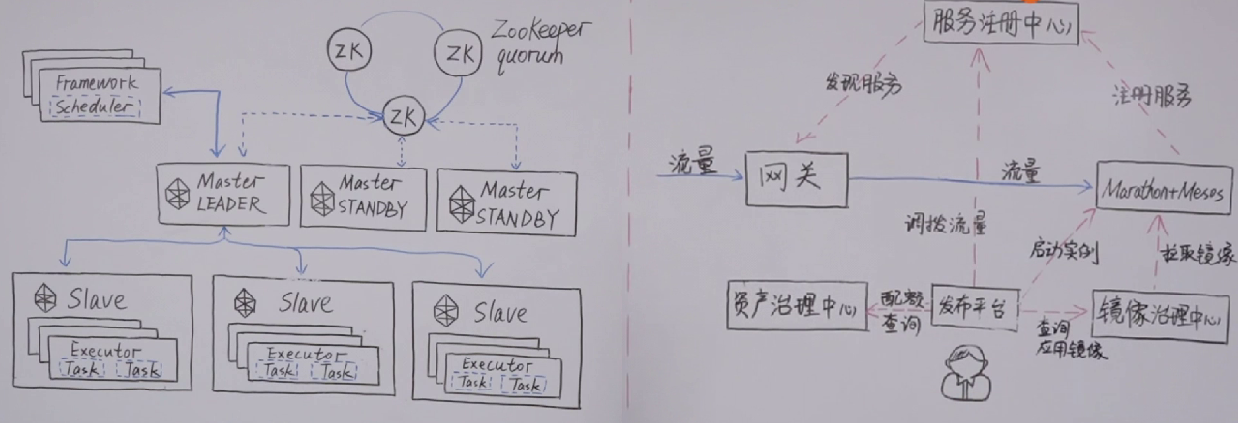 ZK
ZK
ZooKeeper
quorum
ZK
Framework
Scheduler
Master
LEADER
Master
STANDBY
Master
STANDBY
Slave
Executor
Task Task
Slave
Executor
Task Task
Slave
Executor
Task Task
服务注册中心
发现服务
注册服务
流量
网关
流量
Marathon+Mesos
调拨流量
启动实例
拉取镜像
资产治理中心
配额
查询
发布平台
查询
应用镜像
镜像治理中心